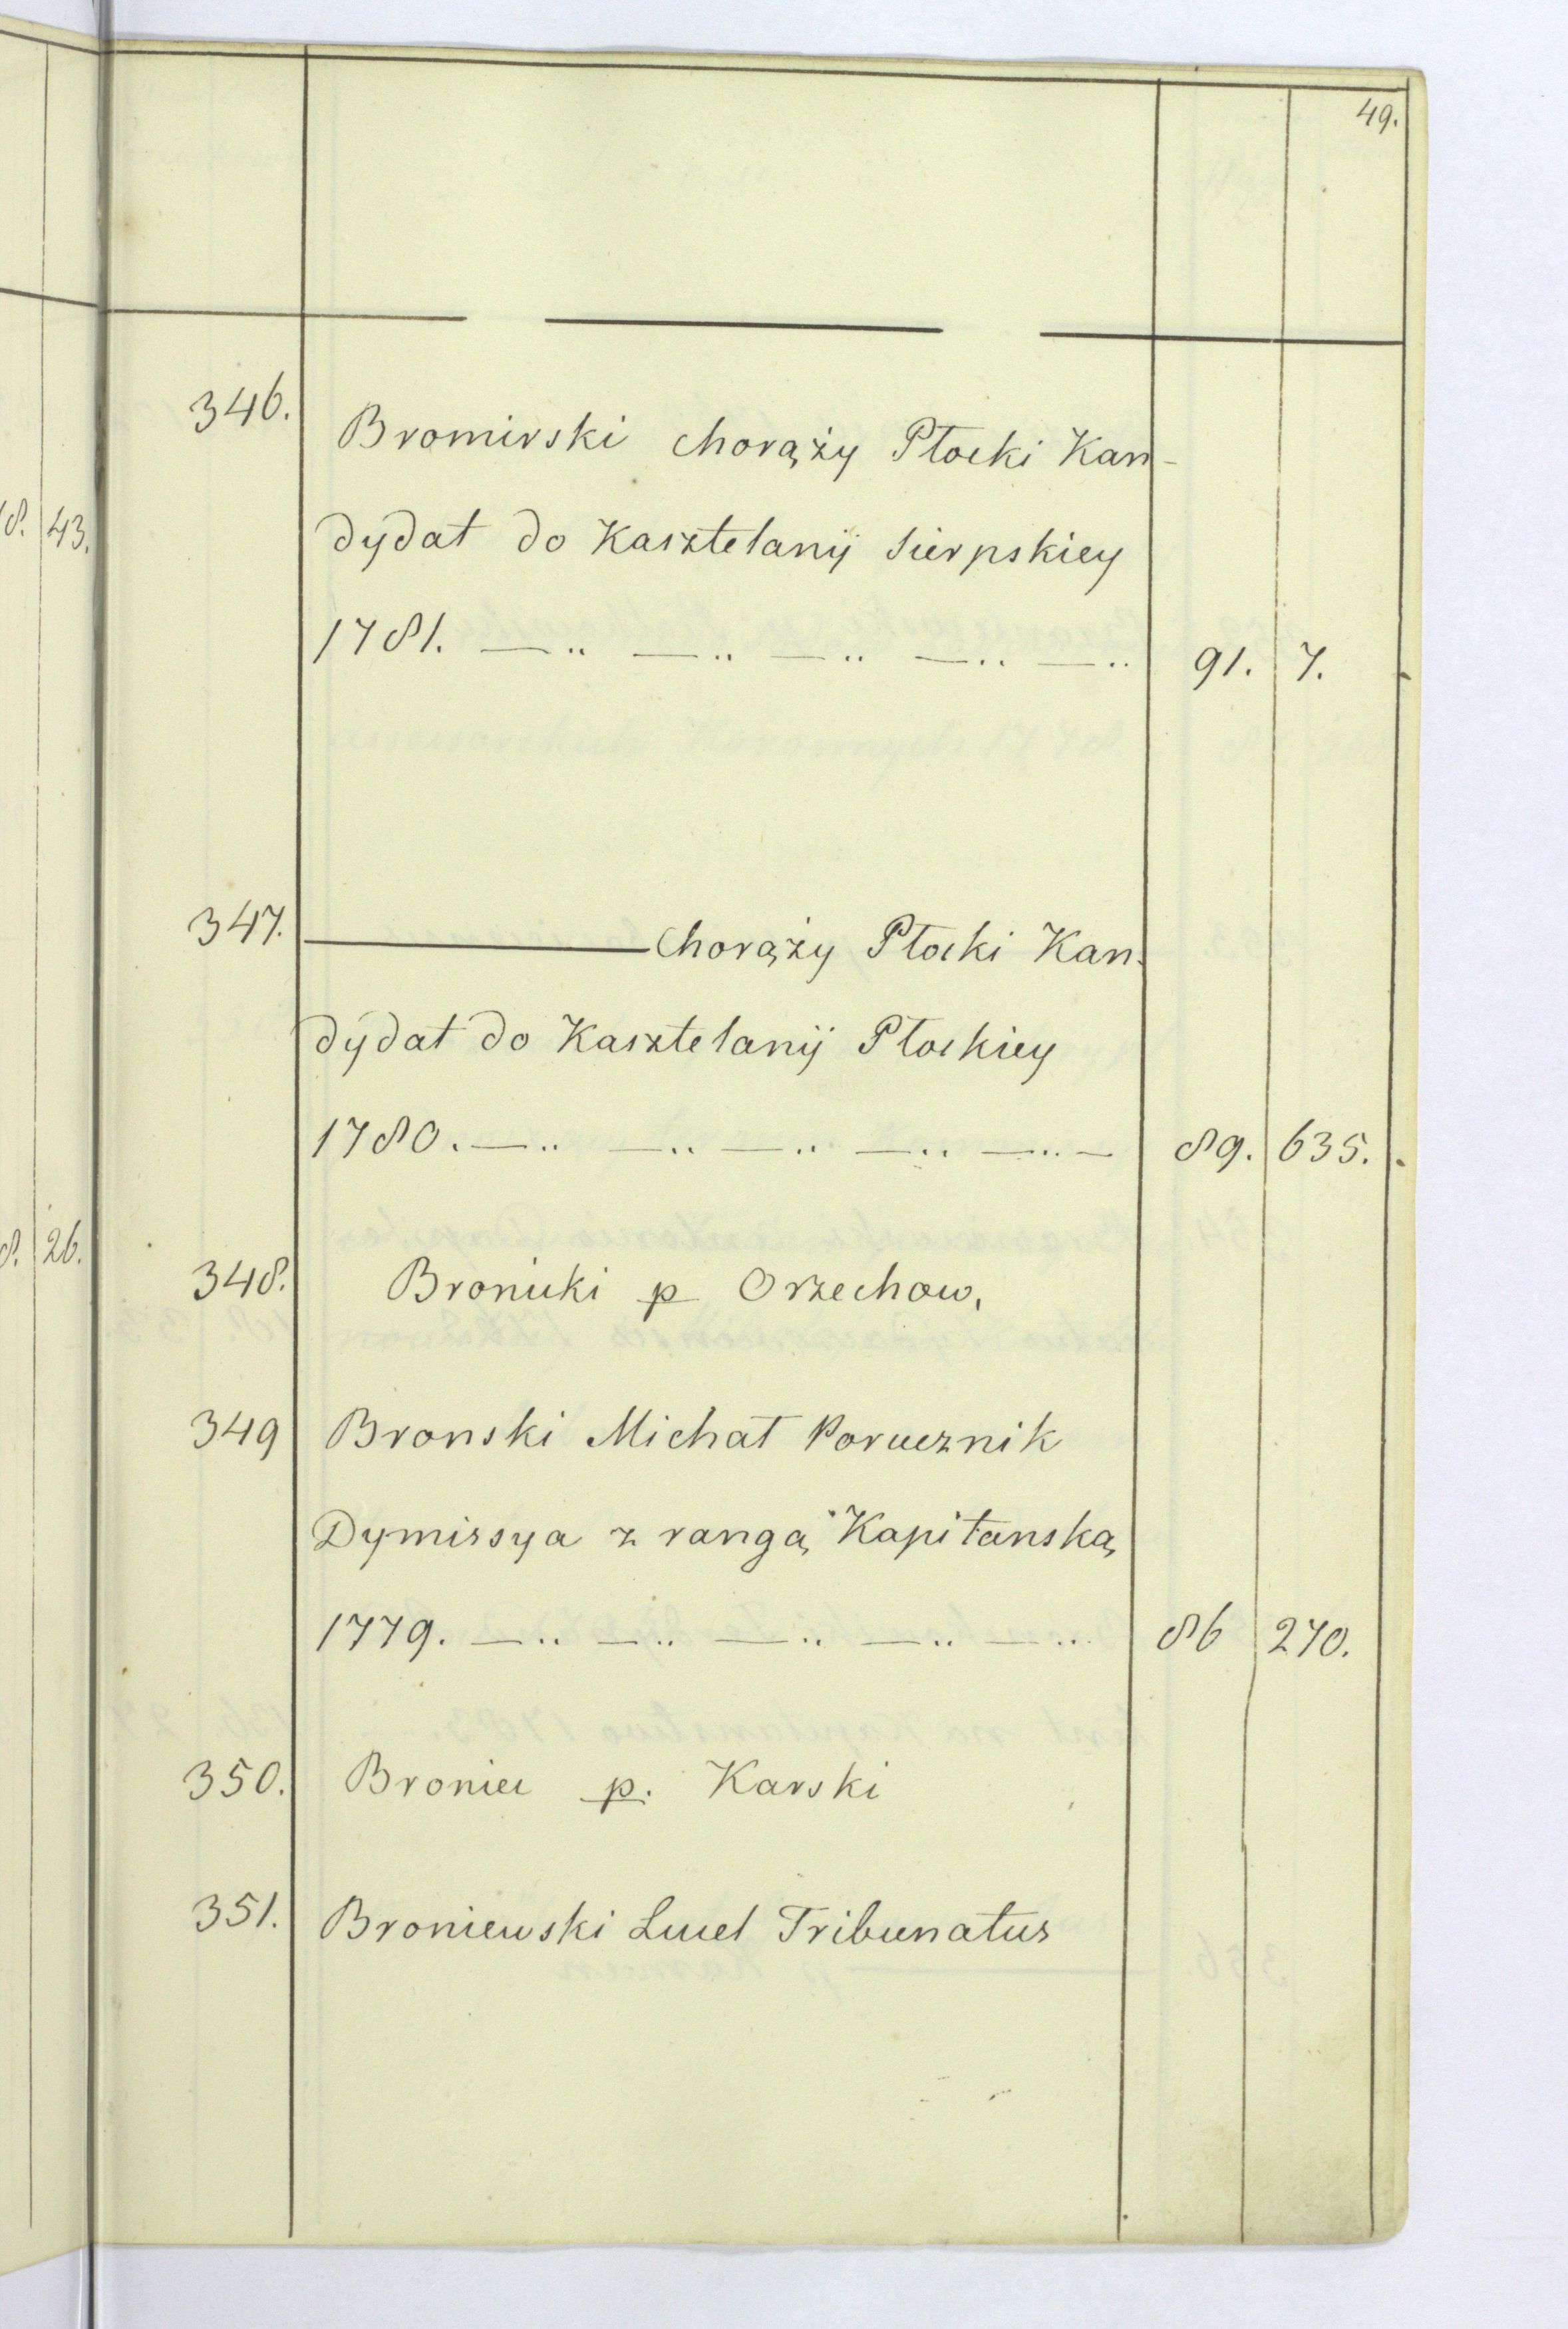 49.
346. Bromirski Chorąży Płocki Kan-
dydat do Kasztelanij Sierpskiey
1781. — .. — .. — .. — .. — .. 91. 7.
347. ——— Chorąży Płocki Kan-
dydat do Kasztelanij Płockiey
1780. — .. — .. — .. — .. — .. — 89. 635.
348. Bronicki p Orzechow.
349 Bronski Michał Porucznik
Dymissya z rangą Kapitanską
1779. — .. — .. — .. — .. — .. 86 270.
350. Broniec p. Karski
351. Broniewski Tribunatus
43.
26.